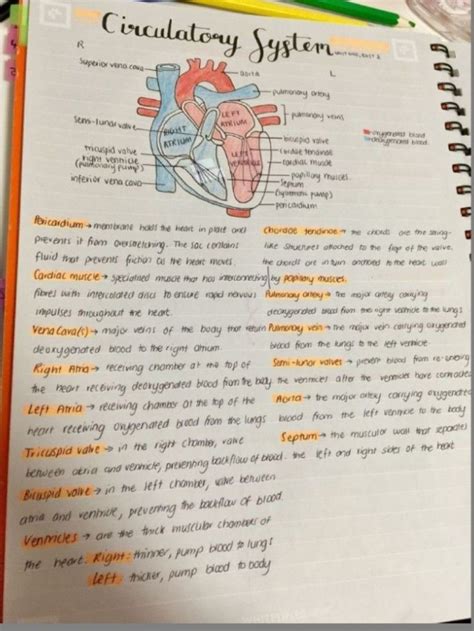 Circulatory System
R
L
Superior vena cava
aorta
pulmonary artery
pulmonary veins
semi-lunar valve
RIGHT ATRIUM
LEFT ATRIUM
oxygenated blood
deoxygenated blood
bicuspid valve
tricuspid valve
chordae tendinae
right ventricle
(pulmonary pump)
LEFT VENTRICLE
cardiac muscle
papillary muscles
inferior vena cava
septum
(systematic pump)
pericardium
Pericardium → membrane holds the heart in place and
prevents it from overstretching. The sac contains
fluid that prevents friction as the heart moves.
Cardiac muscle → specialised muscle that has interconnecting
fibres with intercalated discs to ensure rapid nervous
impulses throughout the heart.
Vena Cava(s) → major veins of the body that return
deoxygenated blood to the right atrium.
Right Atria → receiving chamber at the top of
the heart receiving deoxygenated blood from the body
Left Atria → receiving chamber at the top of the
heart receiving oxygenated blood from the lungs
Tricuspid valve → in the right chamber, valve
between atria and ventricle, preventing backflow of blood.
Bicuspid valve → in the left chamber, valve between
atria and ventricle, preventing the backflow of blood.
Ventricles → are the thick muscular chambers of
the heart. Right: thinner, pump blood to lungs
Left: thicker, pump blood to body
Chordae tendinae → the chords are the string-
like structures attached to the flap of the valve.
the chords are in turn anchored to the heart wall
by papillary muscles.
Pulmonary artery → the major artery carrying
deoxygenated blood from the right ventricle to the lungs
Pulmonary vein → the major vein carrying oxygenated
blood from the lungs to the left ventricle
Semi-lunar valves → prevent blood from re-entering
the ventricles after the ventricles have contracted
Aorta → the major artery carrying oxygenated
blood from the left ventricle to the body
Septum → the muscular wall that separates
the left and right sides of the heart